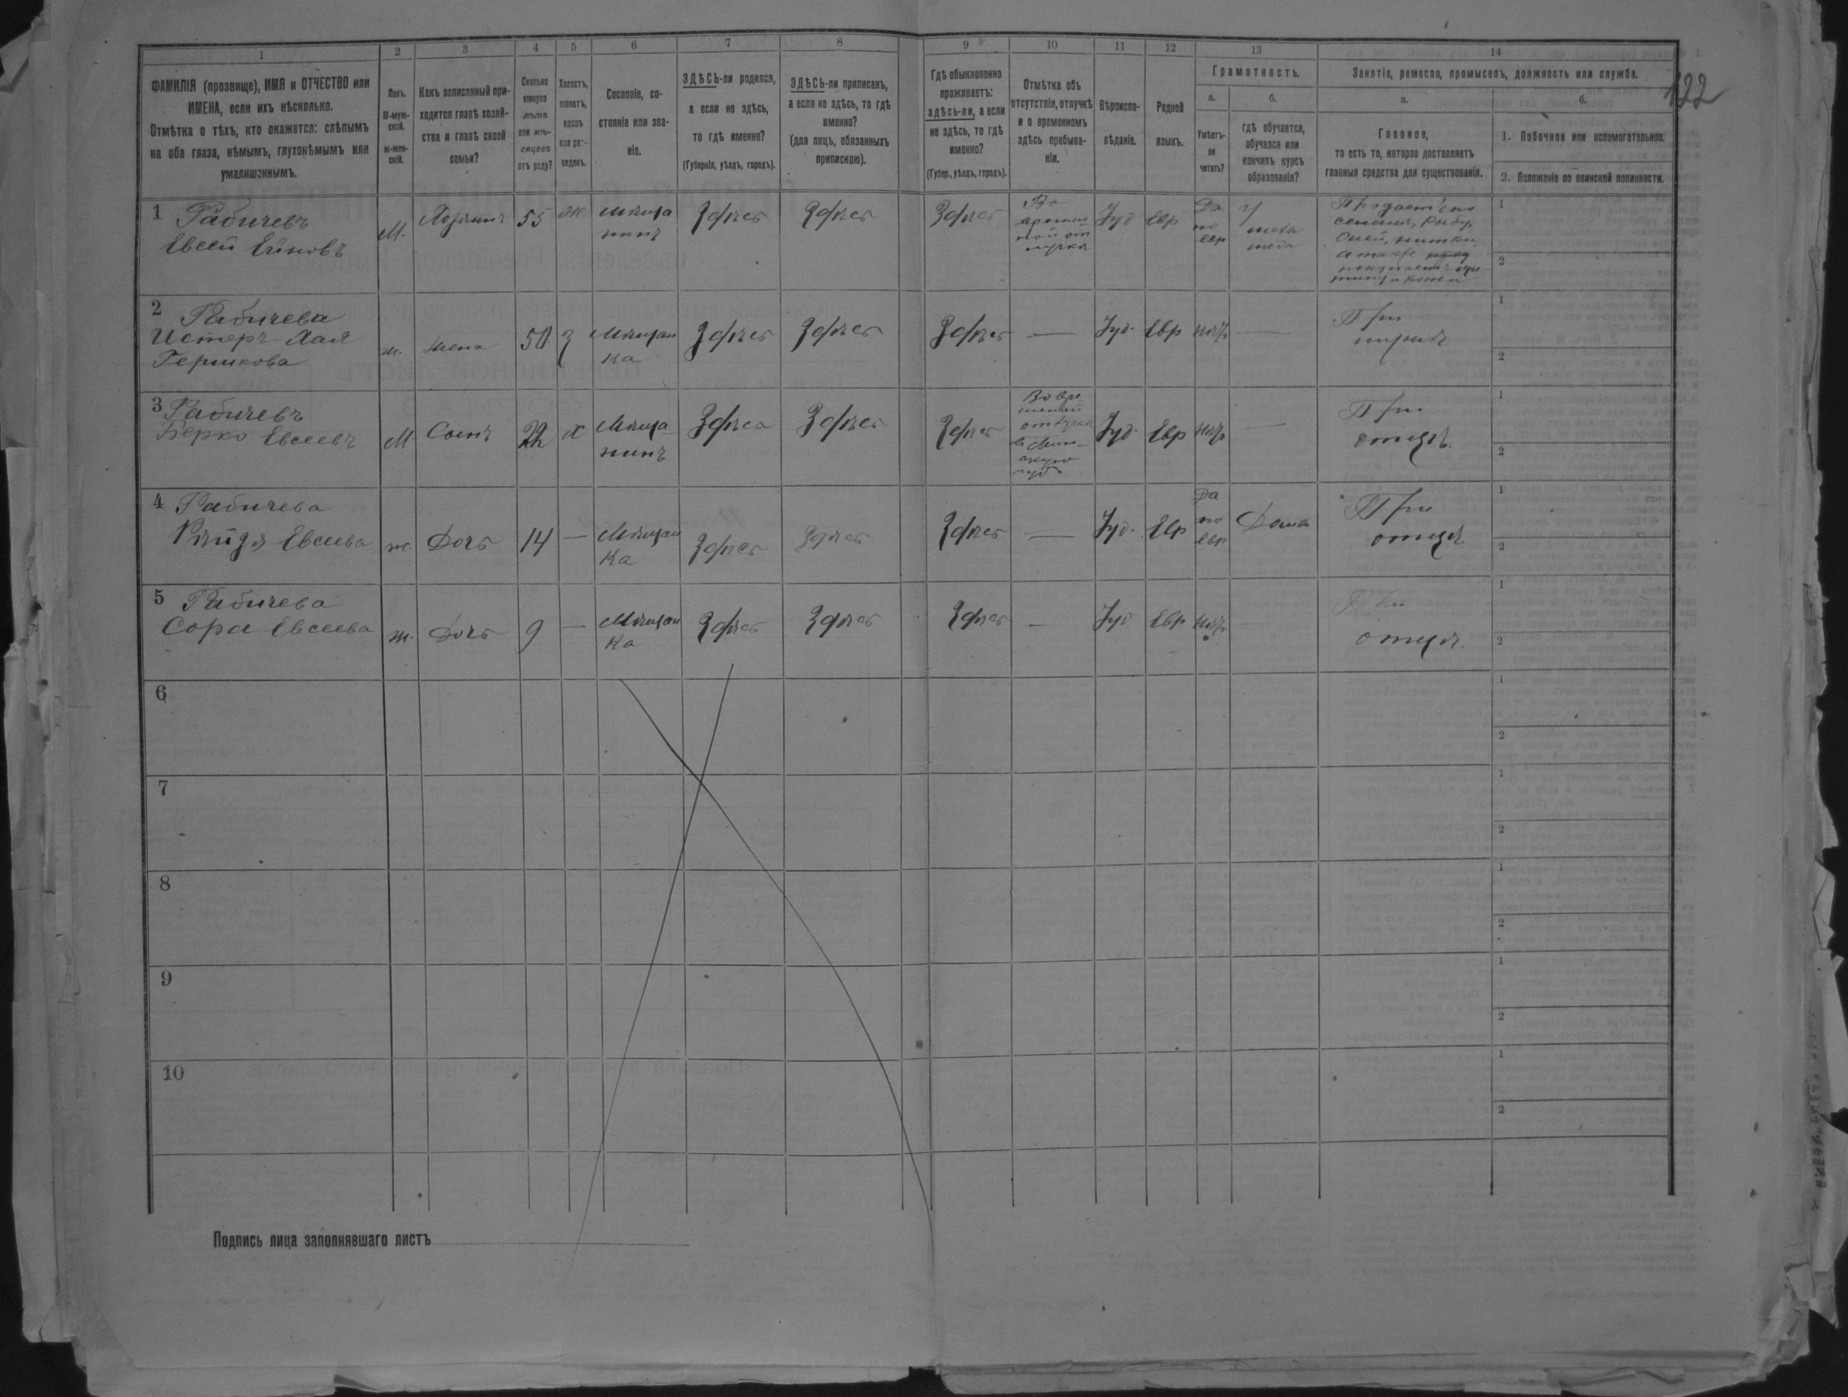 122
1 2 3 4 5 6 7 8 9 10 11 12 13 14
ФАМИЛІЯ (прозвище), ИМЯ и ОТЧЕСТВО или
ИМЕНА, если ихъ нѣсколько.
Отмѣтка о тѣхъ, кто окажется: слѣпымъ
на оба глаза, нѣмымъ, глухонѣмымъ или
умалишоннымъ.
Полъ.
М-муж-
ской.
Ж-жен-
скій.
Какъ записанный при-
ходится главѣ хозяй-
ства и главѣ своей
семьи?
Сколько
минуло
лѣтъ
или мѣ-
сяцевъ
отъ роду?
Холостъ,
женатъ,
вдовъ
или раз-
веденъ.
Сословіе, со-
стояніе или зва-
ніе.
ЗДѢСЬ-ли родился,
а если не здѣсь,
то гдѣ именно?
(Губернія, уѣздъ, городъ).
ЗДѢСЬ-ли приписанъ,
а если не здѣсь, то гдѣ
именно?
(для лицъ, обязанныхъ
припискою).
Гдѣ обыкновенно
проживаетъ:
здѣсь-ли, а если
не здѣсь, то гдѣ
именно?
(Губер., уѣздъ, городъ).
Отмѣтка объ
отсутствіи, отлучкѣ
и о временномъ
здѣсь пребыва-
ніи.
Вѣроиспо-
вѣданіе.
Родной
языкъ.
Грамотность.
а.
Умѣетъ-
ли
читать?
б.
гдѣ обучается,
обучался или
кончилъ курсъ
образованія?
Занятіе, ремесло, промыселъ, должность или служба.
а.
Главное,
то есть то, которое доставляетъ
главныя средства для существованія.
б.
1. Побочное или вспомогательное.
2. Положеніе по воинской повинности.
1 Рабичевъ
Евсей
М.
Хозяинъ
55
Ж
Мѣща
нинъ
Здѣсь
Здѣсь
Здѣсь
Іуд
Евр
Да
по
евр
Продаетъ по
2 Рабичева
Истеръ Хая
Гершкова
ж.
Жена
50
З
Мѣщан
ка
Здѣсь
Здѣсь
Здѣсь
—
Іуд.
Евр
нѣтъ
—
При
мужѣ
3 Рабичевъ
Берко Евсеевъ
М
Сынъ
22
Х
Мѣща
нинъ
Здѣсь
Здѣсь
Здѣсь
Во вре-
менной
отлучкѣ
въ Мин-
скую
губ
Іуд.
Евр
нѣтъ
—
При
отцѣ.
4 Рабичева
Евсеева
ж.
Дочь
14
—
Мѣщан
ка
Здѣсь
Здѣсь
Здѣсь
—
Іуд.
Евр
Да
по
евр
Дома
При
отцѣ.
5 Рабичева
Сора Евсеева
ж.
Дочь
9
—
Мѣщан
ка
Здѣсь
Здѣсь
Здѣсь
—
Іуд
Евр
нѣтъ
—
При
отцѣ.
6
7
8
9
10
Подпись лица заполнявшаго листъ